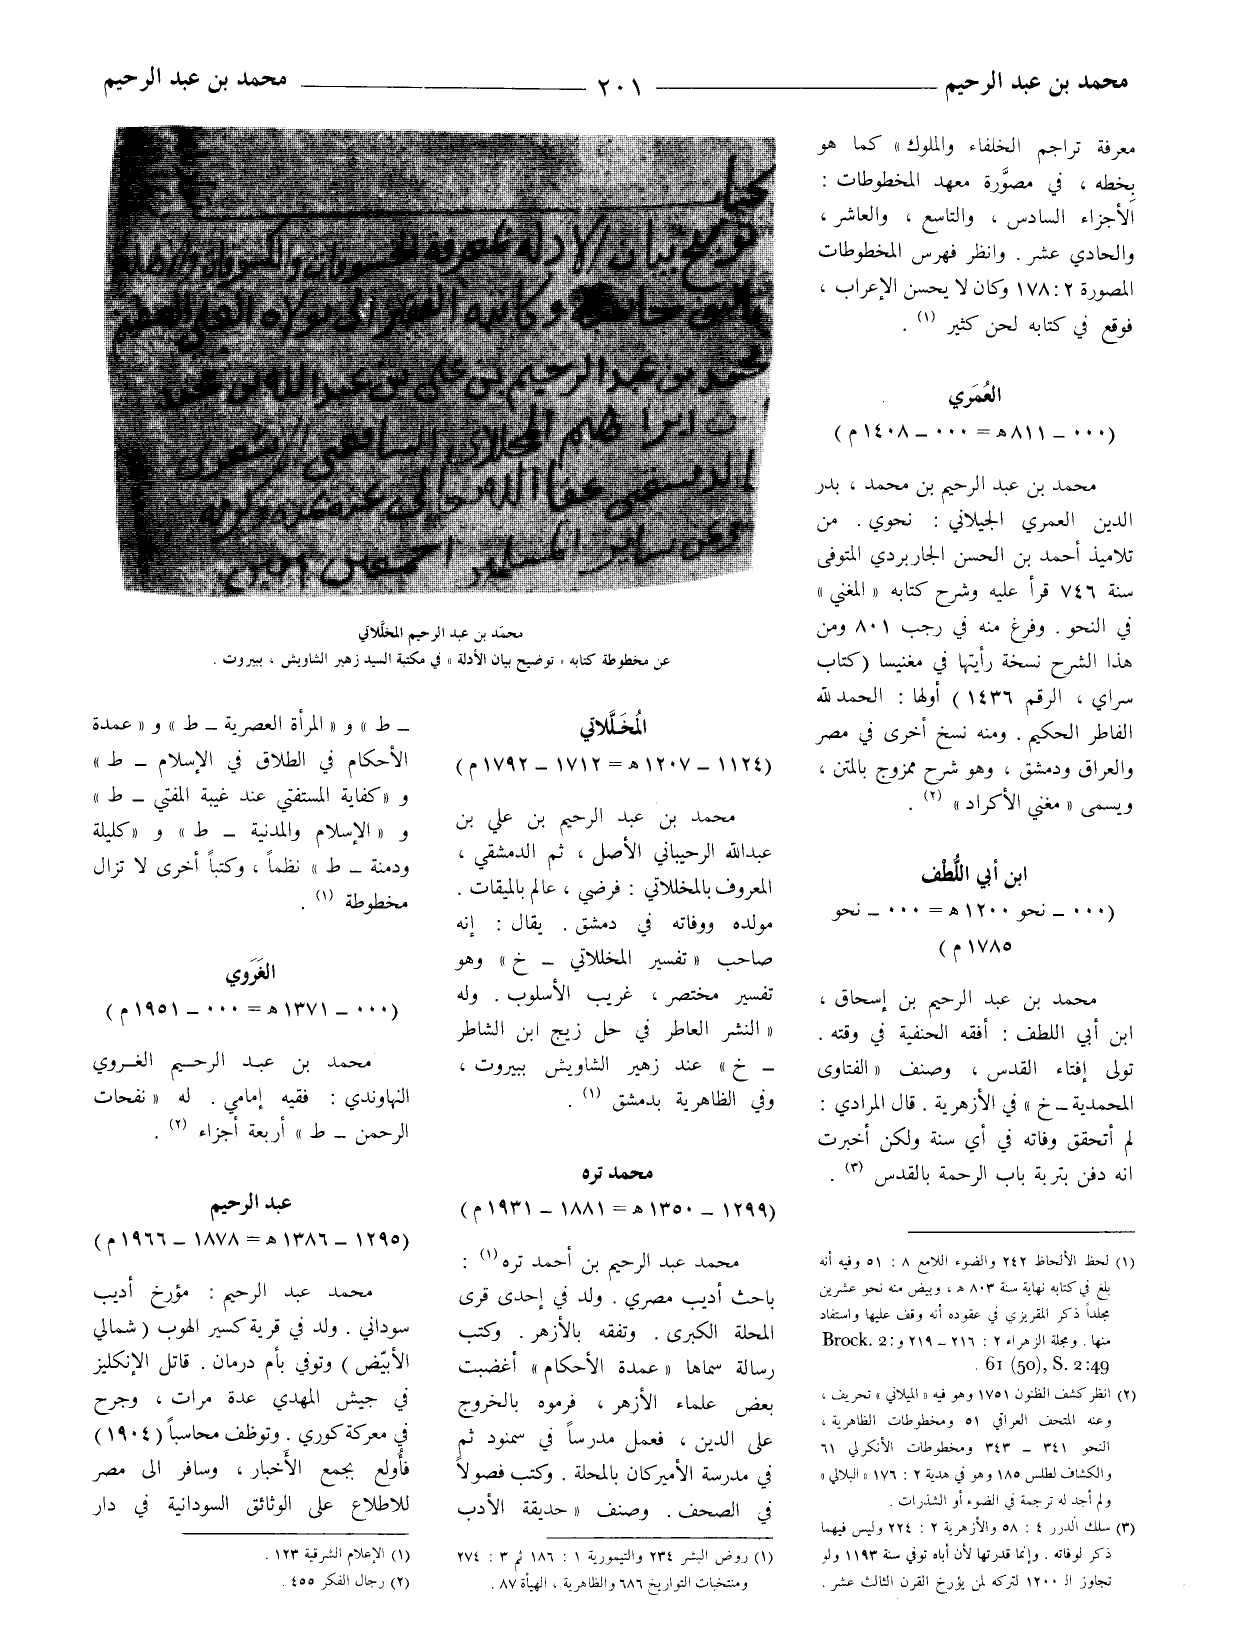 محمد بن عبد الرحيم ٢٠١ محمد بن عبد الرحيم
معرفة تراجم الخلفاء والملوك » كما هو
بِخطه ، في مصوَّرة معهد المخطوطات :
الأجزاء السادس ، والتاسع ، والعاشر ،
والحادي عشر . وانظر فهرس المخطوطات
المصورة ٢ : ١٧٨ وكان لا يحسن الإعراب ،
فوقع في كتابه لحن كثير (١) .
العُمَري
(٠٠٠ ــ ٨١١ ه‍ = ٠٠٠ ــ ١٤٠٨ م)
محمد بن عبد الرحيم بن محمد ، بدر
الدين العمري الجيلاني : نحوي . من
تلاميذ أحمد بن الحسن الجاربردي المتوفى
سنة ٧٤٦ قرأ عليه وشرح كتابه « المغني »
في النحو . وفرغ منه في رجب ٨٠١ ومن
هذا الشرح نسخة رأيتها في مغنيسا (كتاب
سراي ، الرقم ١٤٣٦ ) أولها : الحمد لله
الفاطر الحكيم . ومنه نسخ أخرى في مصر
والعراق ودمشق ، وهو شرح ممزوج بالمتن ،
ويسمى « مغني الأكراد » (٢) .
ابن أبي اللُّطْف
(٠٠٠ ــ نحو ١٢٠٠ ه‍ = ٠٠٠ ــ نحو
١٧٨٥ م )
محمد بن عبد الرحيم بن إسحاق ،
ابن أبي اللطف : أفقه الحنفية في وقته .
تولى إفتاء القدس ، وصنف « الفتاوى
المحمدية ــ خ » في الأزهرية . قال المرادي :
لم أتحقق وفاته في أي سنة ولكن أخبرت
انه دفن بتربة باب الرحمة بالقدس (٣) .
(١) لحظ الألحاظ ٢٤٢ والضوء اللامع ٨ : ٥١ وفيه أنه
بلغ في كتابه نهاية سنة ٨٠٣ ه‍ ، وبيض منه نحو عشرين
مجلداً ذكر المقريزي في عقوده أنه وقف عليها واستفاد
منها . ومجلة الزهراء ٢ : ٢١٦ ــ ٢١٩ و Brock. 2:
61 (50), S. 2:49 .
(٢) انظر كشف الظنون ١٧٥١ وهو فيه « الميلاني » تحريف ،
وعنه المتحف العراقي ٥١ ومخطوطات الظاهرية ،
النحو ٣٤١ ــ ٣٤٣ ومخطوطات الأنكرلي ٦١
والكشاف لطلس ١٨٥ وهو في هدية ٢ : ١٧٦ « البلالي »
ولم أجد له ترجمة في الضوء أو الشذرات .
(٣) سلك الدرر ٤ : ٥٨ والأزهرية ٢ : ٢٢٤ وليس فيهما
ذكر لوفاته . وإنما قدرتها لأن أباه توفي سنة ١١٩٣ ولو
تجاوز الـ ١٢٠٠ لتركه لمن يؤرخ القرن الثالث عشر .
توضيح بيان الادلة لمعرفة
وكاتبه الفقير الى مولاه العلي
محمد بن عبد الرحيم بن علي بن عبد الله بن محمد
ابن ابراهيم المخللاتي الشافعي الاشعري
الدمشقي عفا الله
وعن ساير المسلمين اجمعين امين
محمّد بن عبد الرحيم المخلَّلاتي
عن مخطوطة كتابه « توضيح بيان الأدلة » في مكتبة السيد زهير الشاويش ، ببيروت .
المُخَلَّلاتي
(١١٢٤ ــ ١٢٠٧ ه‍ = ١٧١٢ ــ ١٧٩٢ م)
محمد بن عبد الرحيم بن علي بن
عبدالله الرحيباني الأصل ، ثم الدمشقي ،
المعروف بالمخللاتي : فرضي ، عالم بالميقات .
مولده ووفاته في دمشق . يقال : إنه
صاحب « تفسير المخللاتي ــ خ » وهو
تفسير مختصر ، غريب الأسلوب . وله
« النشر العاطر في حل زيج ابن الشاطر
ــ خ » عند زهير الشاويش ببيروت ،
وفي الظاهرية بدمشق (١) .
محمد تره
(١٢٩٩ ــ ١٣٥٠ ه‍ = ١٨٨١ ــ ١٩٣١ م)
محمد عبد الرحيم بن أحمد تره (١) :
باحث أديب مصري . ولد في إحدى قرى
المحلة الكبرى . وتفقه بالأزهر . وكتب
رسالة سماها « عمدة الأحكام » أغضبت
بعض علماء الأزهر ، فرموه بالخروج
على الدين ، فعمل مدرساً في سمنود ثم
في مدرسة الأميركان بالمحلة . وكتب فصولاً
في الصحف . وصنف « حديقة الأدب
(١) روض البشر ٢٣٤ والتيمورية ١ : ١٨٦ ثم ٣ : ٢٧٤
ومنتخبات التواريخ ٦٨٦ والظاهرية ، الهيأة ٨٧ .
ــ ط » و « المرأة العصرية ــ ط » و « عمدة
الأحكام في الطلاق في الإسلام ــ ط »
و « كفاية المستفتي عند غيبة المفتي ــ ط »
و « الإسلام والمدنية ــ ط » و « كليلة
ودمنة ــ ط » نظماً ، وكتباً أخرى لا تزال
مخطوطة (١) .
الغَرَوي
(٠٠٠ ــ ١٣٧١ ه‍ = ٠٠٠ ــ ١٩٥١ م)
محمد بن عبد الرحيم الغروي
النهاوندي : فقيه إمامي . له « نفحات
الرحمن ــ ط » أربعة أجزاء (٢) .
عبد الرحيم
(١٢٩٥ ــ ١٣٨٦ ه‍ = ١٨٧٨ ــ ١٩٦٦ م)
محمد عبد الرحيم : مؤرخ أديب
سوداني . ولد في قرية كسير الهوب ( شمالي
الأبيّض ) وتوفي بأم درمان . قاتل الإنكليز
في جيش المهدي عدة مرات ، وجرح
في معركة كوري . وتوظف محاسباً (١٩٠٤)
فأولع بجمع الأخبار ، وسافر الى مصر
للاطلاع على الوثائق السودانية في دار
(١) الإعلام الشرقية ١٢٣ .
(٢) رجال الفكر ٤٥٥ .